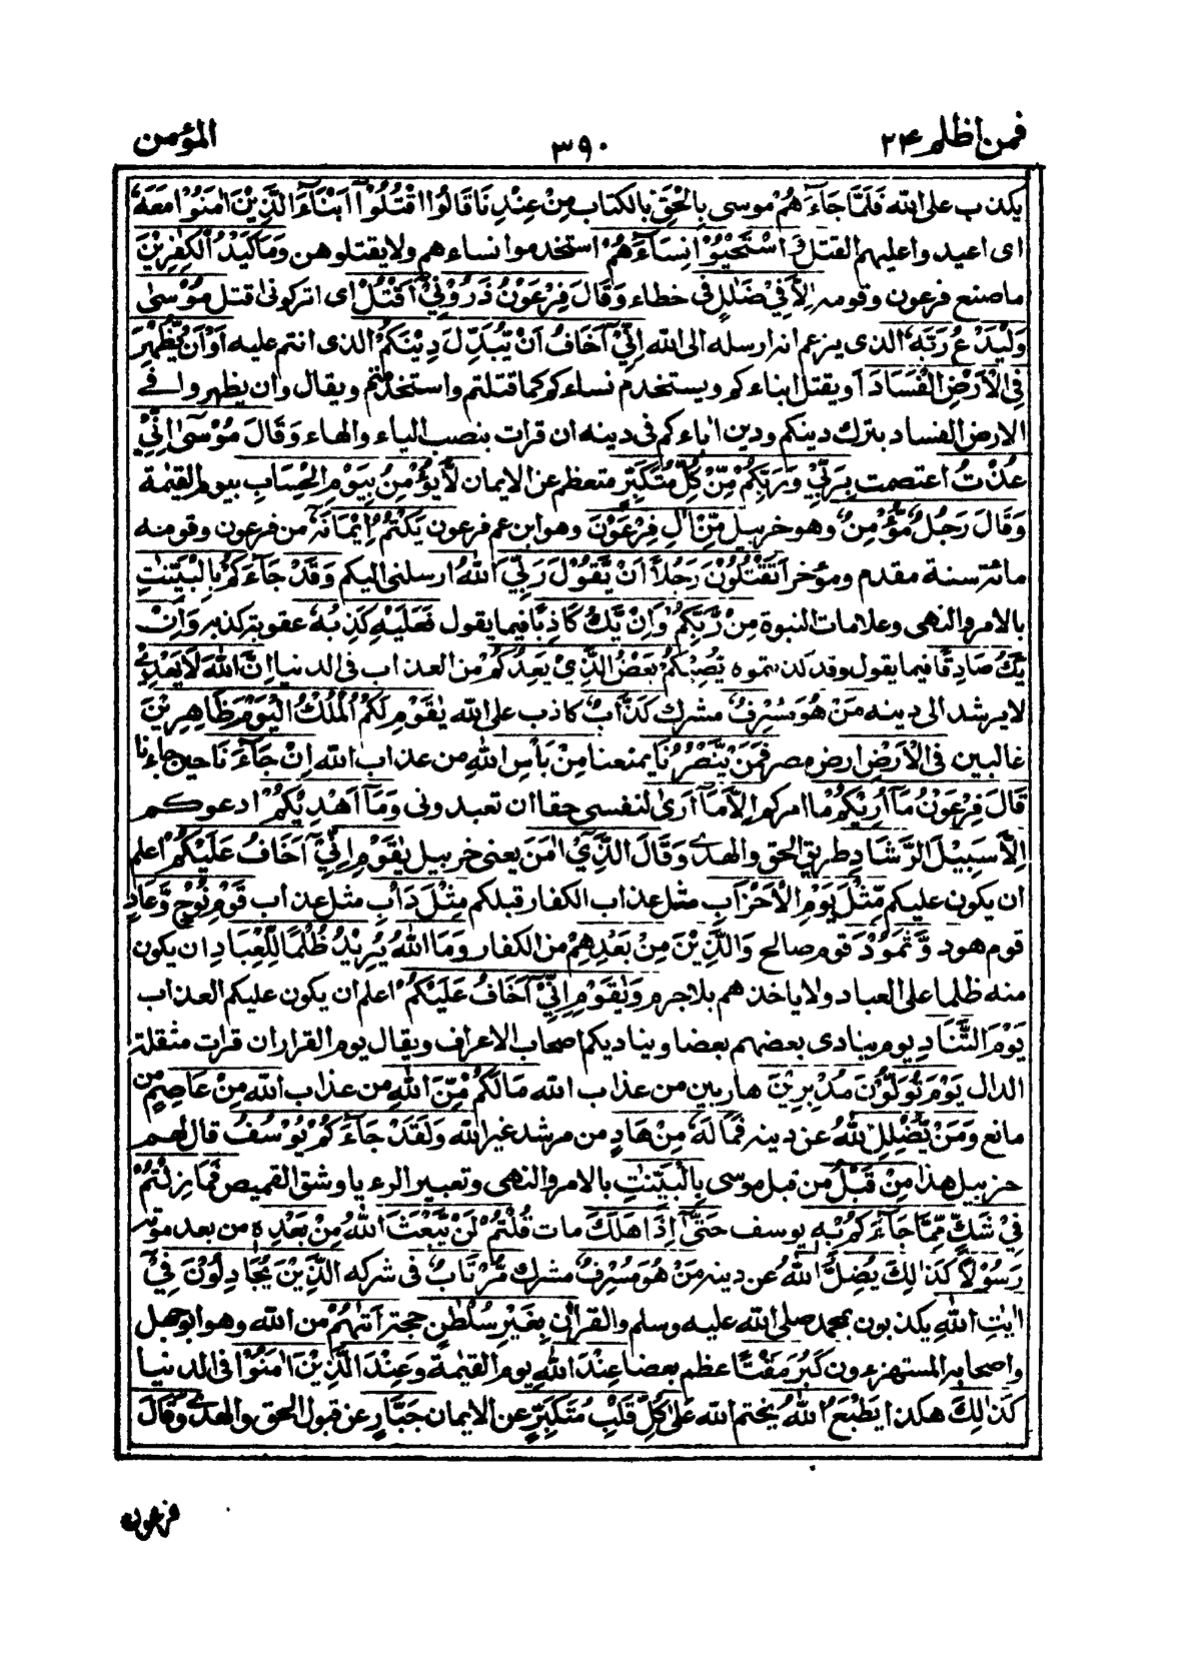 فمن اظلم ٢٤
٣٩٠
المؤمن
يكذب على الله فَلَمَّا جَآءَهُمْ موسى بِالْحَقِّ بالكتاب مِنْ عِنْدِنَا قَالُوا اقْتُلُوْٓا اَبْنَآءَ الَّذِيْنَ اٰمَنُوْا مَعَهٗ
اى اعيدوا عليهم القتل وَ اسْتَحْيُوْا نِسَآءَهُمْ استخدموا نساءهم ولا يقتلوهن وَمَا كَيْدُ الْكٰفِرِيْنَ
ما صنع فرعون وقومه اِلَّا فِيْ ضَلٰلٍ فى خطاء وَقَالَ فِرْعَوْنُ ذَرُوْنِيْٓ اَقْتُلْ اى اتركونى اقتل مُوْسٰى
وَلْيَدْعُ رَبَّهٗ الذى يزعم انه ارسله الى الله اِنِّيْٓ اَخَافُ اَنْ يُّبَدِّلَ دِيْنَكُمْ الذى انتم عليه اَوْ اَنْ يُّظْهِرَ
فِى الْاَرْضِ الْفَسَادَ او يقتل ابناءكم ويستخدم نساءكم كما قتلتم واستخدمتم ويقال وان يظهروا فى
الارض الفساد بترك دينكم ودين اباءكم فى دينه ان قرات بنصب الياء والهاء وَقَالَ مُوْسٰٓى اِنِّيْ
عُذْتُ اعتصمت بِرَبِّيْ وَرَبِّكُمْ مِّنْ كُلِّ مُتَكَبِّرٍ متعظم عن الايمان لَّا يُؤْمِنُ بِيَوْمِ الْحِسَابِ بيوم القيٰمة
وَقَالَ رَجُلٌ مُّؤْمِنٌ وهو خربيل مِّنْ اٰلِ فِرْعَوْنَ وهو ابن عم فرعون يَكْتُمُ اِيْمَانَهٗٓ من فرعون وقومه
مائة سنة مقدم ومؤخر اَتَقْتُلُوْنَ رَجُلًا اَنْ يَّقُوْلَ رَبِّيَ اللّٰهُ ارسلنى اليكم وَقَدْ جَآءَكُمْ بِالْبَيِّنٰتِ
بالامر والنهى وعلامات النبوة مِنْ رَّبِّكُمْ وَاِنْ يَّكُ كَاذِبًا فيما يقول فَعَلَيْهِ كَذِبُهٗ عقوبة كذبه وَاِنْ
يَّكُ صَادِقًا فيما يقول وقد كذبتموه يُّصِبْكُمْ بَعْضُ الَّذِيْ يَعِدُكُمْ من العذاب فى الدنيا اِنَّ اللّٰهَ لَا يَهْدِيْ
لا يرشد الى دينه مَنْ هُوَ مُسْرِفٌ مشرك كَذَّابٌ كاذب على الله يٰقَوْمِ لَكُمُ الْمُلْكُ الْيَوْمَ ظَاهِرِيْنَ
غالبين فِى الْاَرْضِ ارض مصر فَمَنْ يَّنْصُرُنَا يمنعنا مِنْ بَاْسِ اللّٰهِ من عذاب الله اِنْ جَآءَنَا حين جاءنا
قَالَ فِرْعَوْنُ مَآ اُرِيْكُمْ ما امركم اِلَّا مَآ اَرٰى لنفسى حقا ان تعبدونى وَمَآ اَهْدِيْكُمْ ادعوكم
اِلَّا سَبِيْلَ الرَّشَادِ طريق الحق والهدى وَقَالَ الَّذِيْٓ اٰمَنَ يعنى خربيل يٰقَوْمِ اِنِّيْٓ اَخَافُ عَلَيْكُمْ اعلم
ان يكون عليكم مِّثْلَ يَوْمِ الْاَحْزَابِ مثل عذاب الكفار قبلكم مِثْلَ دَاْبِ مثل عذاب قَوْمِ نُوْحٍ وَّعَادٍ
قوم هود وَّثَمُوْدَ قوم صالح وَالَّذِيْنَ مِنْ بَعْدِهِمْ من الكفار وَمَا اللّٰهُ يُرِيْدُ ظُلْمًا لِّلْعِبَادِ ان يكون
منه ظلما على العباد ولا ياخذهم بلا جرم وَيٰقَوْمِ اِنِّيْٓ اَخَافُ عَلَيْكُمْ اعلم ان يكون عليكم العذاب
يَوْمَ التَّنَادِ يوم ينادى بعضهم بعضا ويناديكم اصحاب الاعراف ويقال يوم القرار ان قرات مثقلة
الدال يَوْمَ تُوَلُّوْنَ مُدْبِرِيْنَ هاربين من عذاب الله مَالَكُمْ مِّنَ اللّٰهِ من عذاب الله مِنْ عَاصِمٍ من
مانع وَمَنْ يُّضْلِلِ اللّٰهُ عن دينه فَمَا لَهٗ مِنْ هَادٍ من مرشد غير الله وَلَقَدْ جَآءَكُمْ يُوْسُفُ قال لهم
حزبيل هذا مِنْ قَبْلُ من قبل موسى بِالْبَيِّنٰتِ بالامر والنهى وتعبير الرءيا وشق القميص فَمَا زِلْتُمْ
فِيْ شَكٍّ مِّمَّا جَآءَكُمْ بِهٖ يوسف حَتّٰٓى اِذَا هَلَكَ مات قُلْتُمْ لَنْ يَّبْعَثَ اللّٰهُ مِنْ بَعْدِهٖ من بعد موته
رَسُوْلًا كَذٰلِكَ يُضِلُّ اللّٰهُ عن دينه مَنْ هُوَ مُسْرِفٌ مشرك مُّرْتَابٌ فى شركه الَّذِيْنَ يُجَادِلُوْنَ فِيْٓ
اٰيٰتِ اللّٰهِ يكذبون بمحمد صلى الله عليه وسلم والقراٰن بِغَيْرِ سُلْطٰنٍ حجة اَتٰىهُمْ من الله وهو ابوجهل
واصحابه المستهزءون كَبُرَ مَقْتًا عظم بعضا عِنْدَ اللّٰهِ يوم القيٰمة وَعِنْدَ الَّذِيْنَ اٰمَنُوْا فى الدنيا
كَذٰلِكَ هكذا يَطْبَعُ اللّٰهُ يختم الله عَلٰى كُلِّ قَلْبِ مُتَكَبِّرٍ عن الايمان جَبَّارٍ عن قبول الحق والهدى وَقَالَ
فرعون